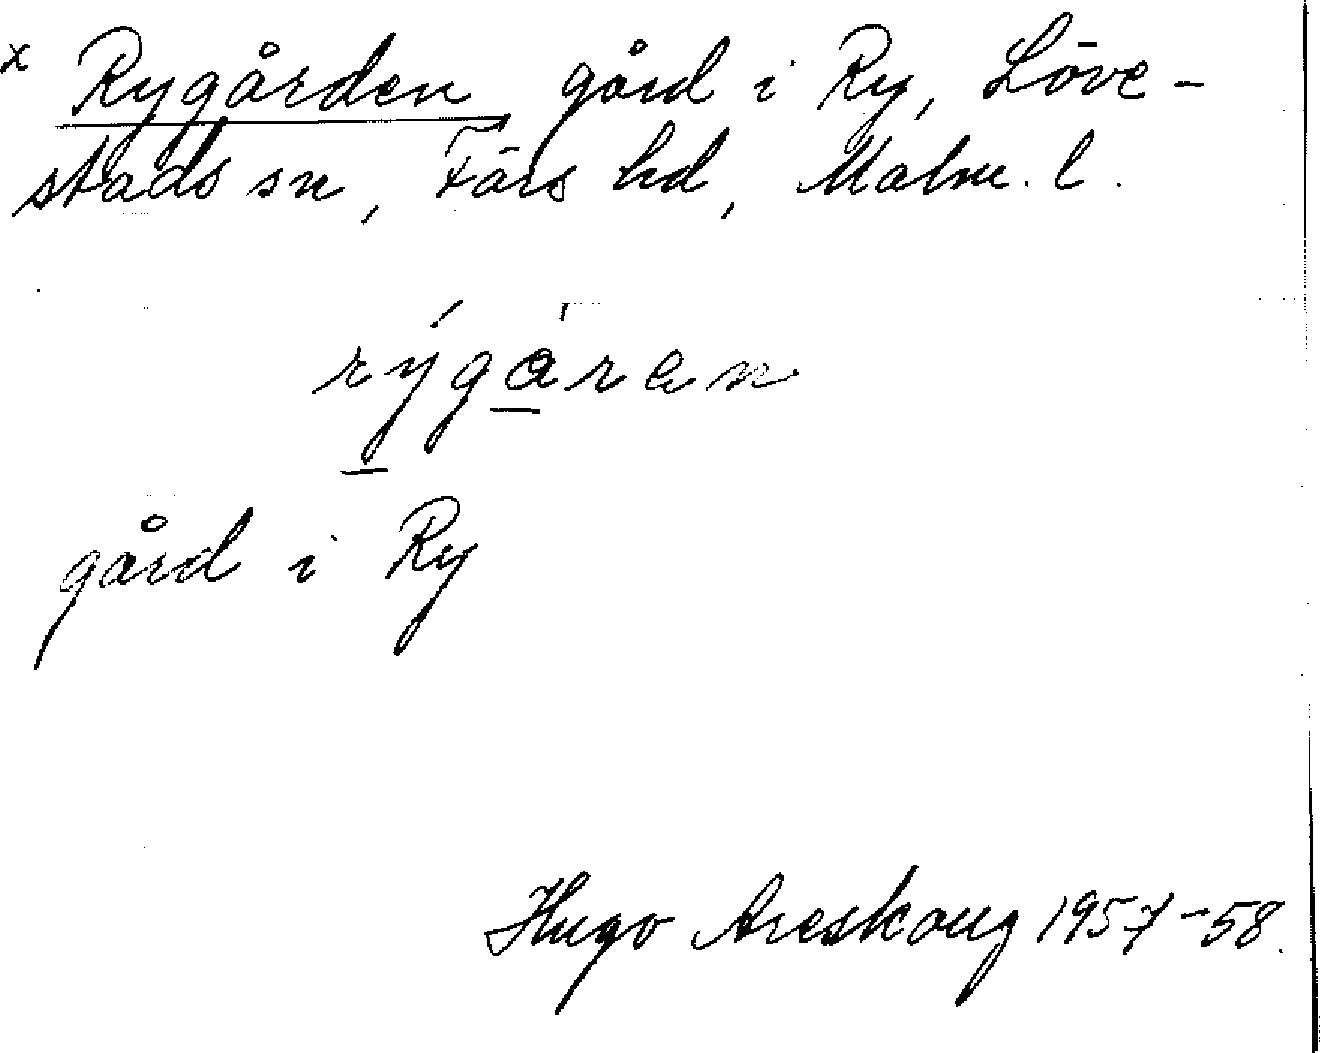 x Rygården gård i Ry, Löve-
stads sn, Färs hd, Malm. l.
rýgàren
gård i Ry
Hugo Areskoug 1957-58.